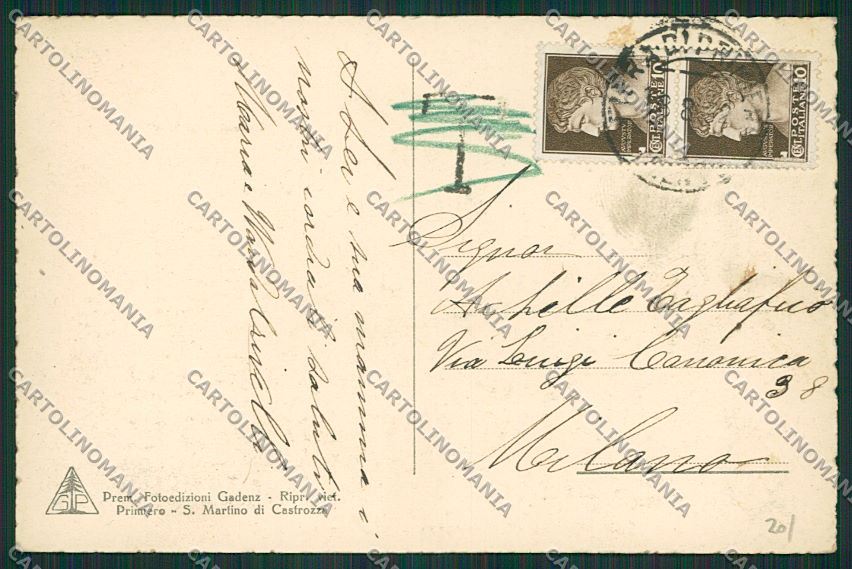 A Lei e sua mamma i
nostri cordiali saluti
Maria e
T
10
POSTE
ITALIANE
CENT
10
POSTE
ITALIANE
CENT
Signor
Achille Tagliafico
Via Luigi Canonica
38
Milano
GP
Prem. Fotoedizioni Gadenz - Ripr. viet.
Primiero - S. Martino di Castrozza
20/
CARTOLINOMANIA